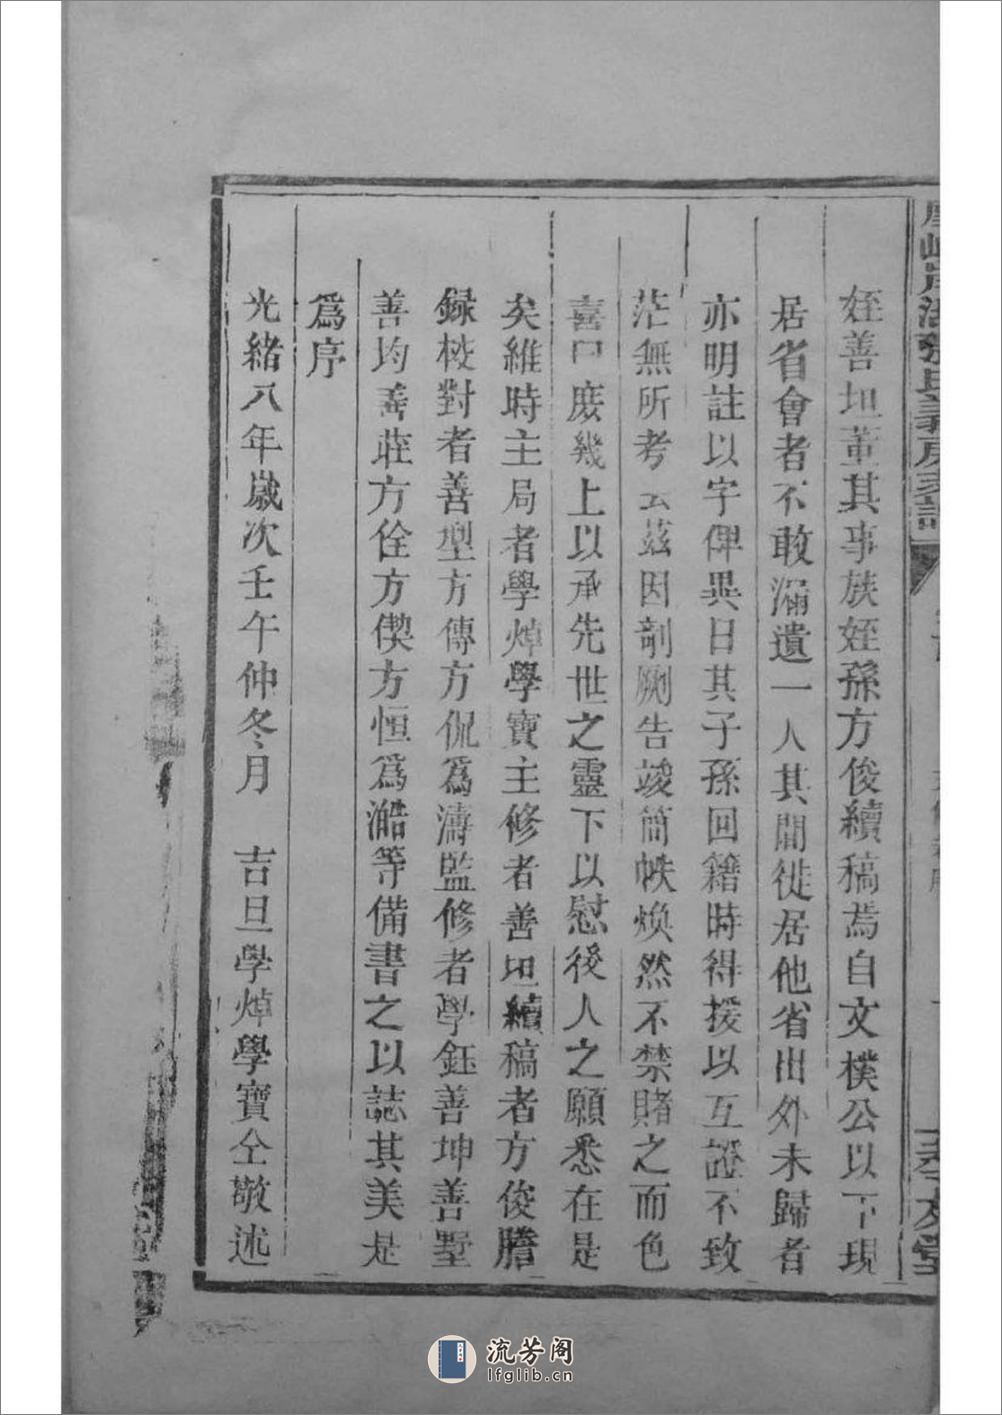 姪善坦董其事族姪孫方俊續稿焉自文樸公以下現
居省會者不敢漏遺一人其間徙居他省出外未歸者
亦明註以字俾異日其子孫回籍時得援以互證不致
茫無所考云茲因剞劂告竣簡帙煥然不禁賭之而色
喜曰庶幾上以承先世之靈下以慰後人之願悉在是
矣維時主局者學焯學寶主修者善坦續稿者方俊謄
録校對者善型方傳方侃為濤監修者學鈺善坤善墅
善均善莊方佺方偰方恒為澔等備書之以誌其美是
為序
光緒八年歲次壬午仲冬月 吉旦學焯學寶仝敬述
流芳阁
lfglib.cn